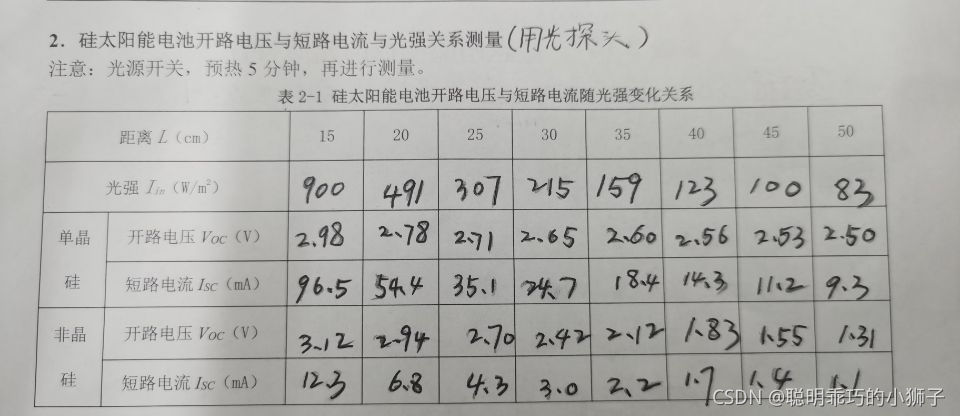 2. 硅太阳能电池开路电压与短路电流与光强关系测量(用光探头)
注意：光源开关，预热 5 分钟，再进行测量。
表 2-1 硅太阳能电池开路电压与短路电流随光强变化关系
距离 L（cm） 15 20 25 30 35 40 45 50
光强 Iin（W/m²） 900 491 307 215 159 123 100 83
单晶硅 开路电压 VOC（V） 2.98 2.78 2.71 2.65 2.60 2.56 2.53 2.50
短路电流 ISC（mA） 96.5 54.4 35.1 24.7 18.4 14.3 11.2 9.3
非晶硅 开路电压 VOC（V） 3.12 2.94 2.70 2.42 2.12 1.83 1.55 1.31
短路电流 ISC（mA） 12.3 6.8 4.3 3.0 2.2 1.7 1.4 1.1
CSDN @聪明乖巧的小狮子